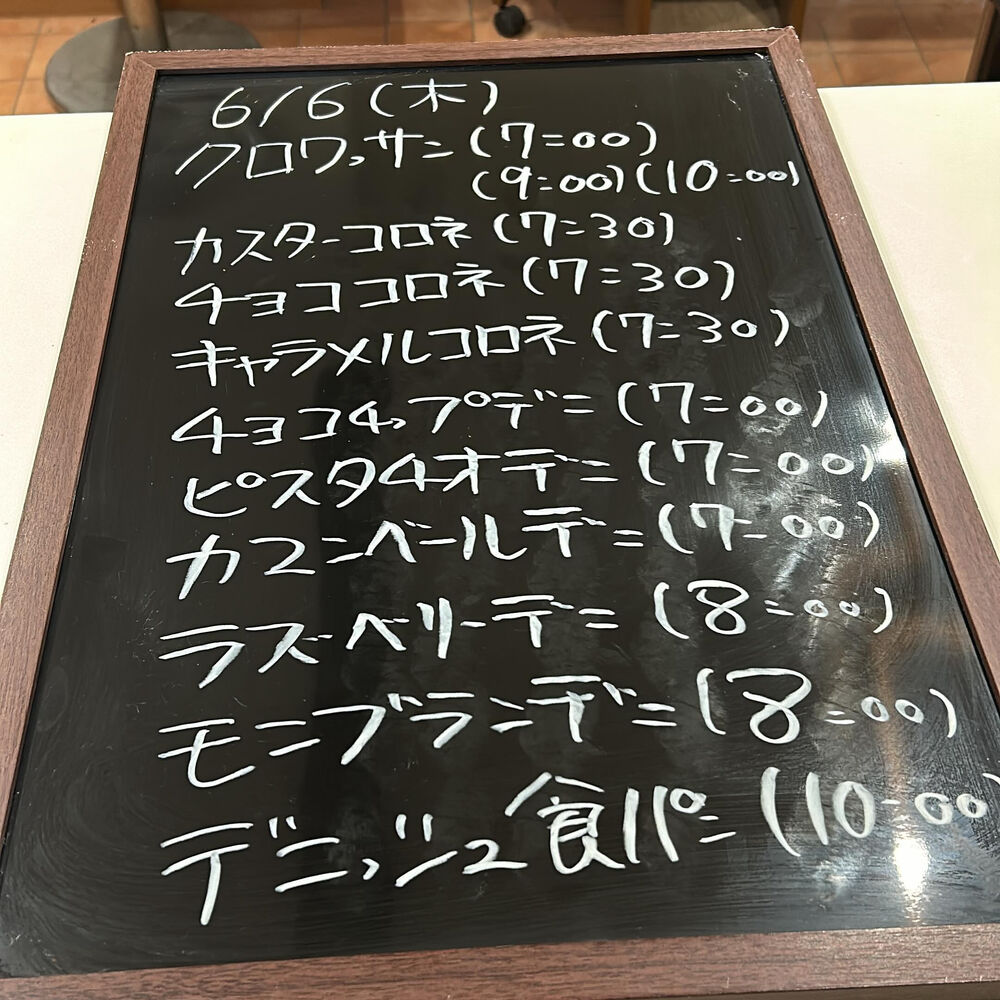 6/6(木)
クロワッサン(7:00)
(9:00)(10:00)
カスターコロネ(7:30)
チョココロネ(7:30)
キャラメルコロネ(7:30)
チョコチップデニ(7:00)
ピスタチオデニ(7:00)
カマンベールデニ(7:00)
ラズベリーデニ(8:00)
モンブランデニ(8:00)
デニッシュ食パン(10:00)